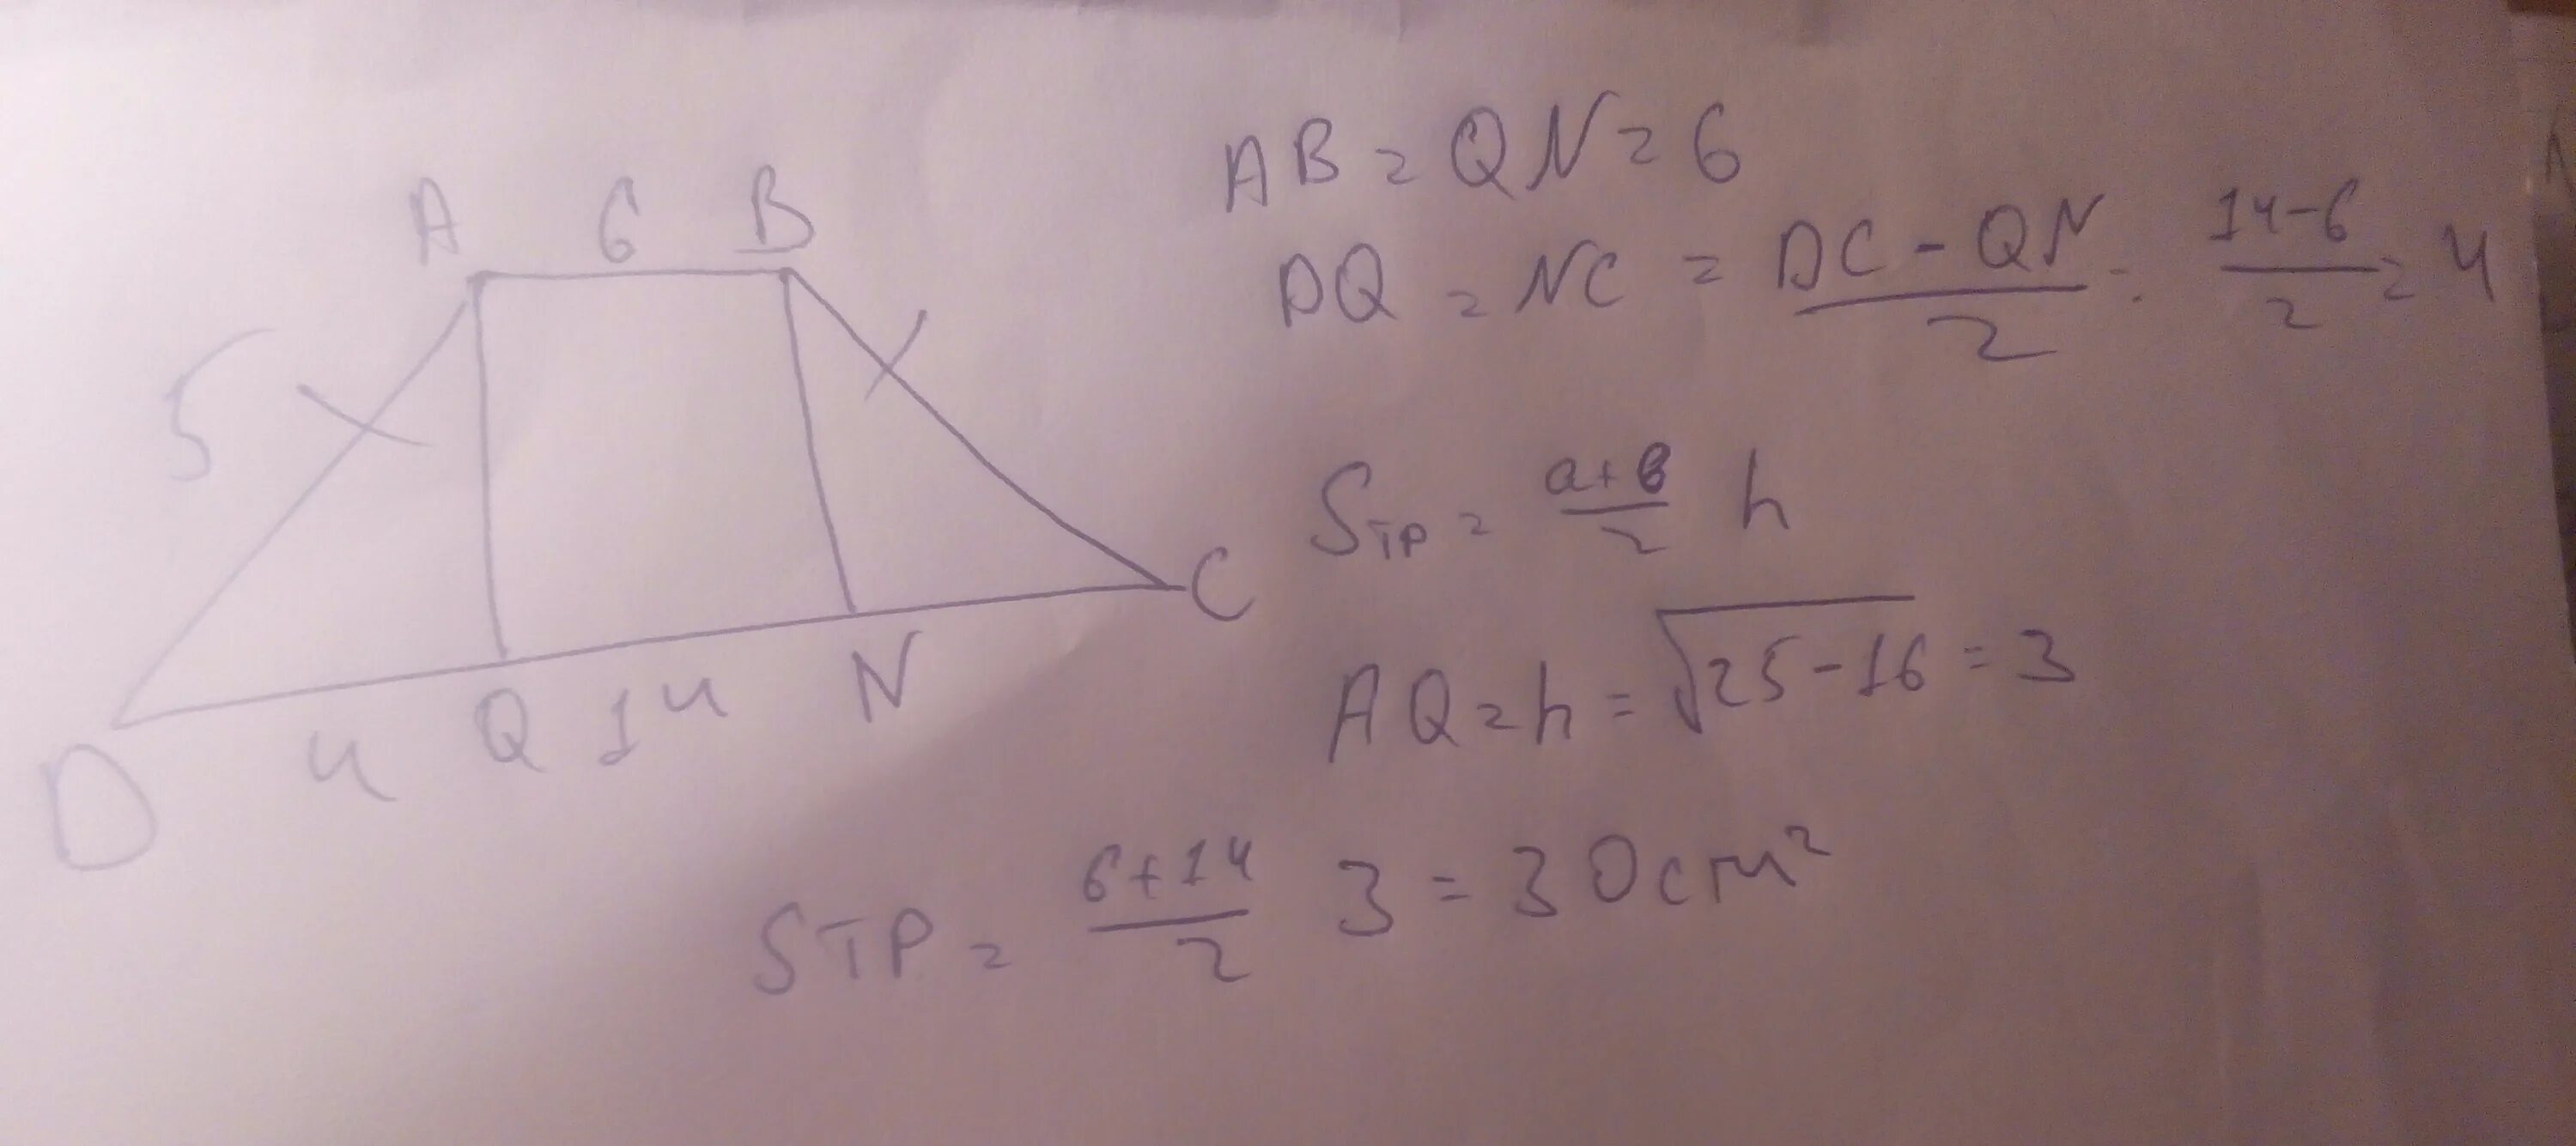 A 6 B
5
D 4 Q 14 N C
AB = QN = 6
DQ = NC = (DC - QN)/2 = (14-6)/2 = 4
Sтр = (a+b)/2 h
AQ = h = √(25-16) = 3
Sтр = (6+14)/2 3 = 30см²